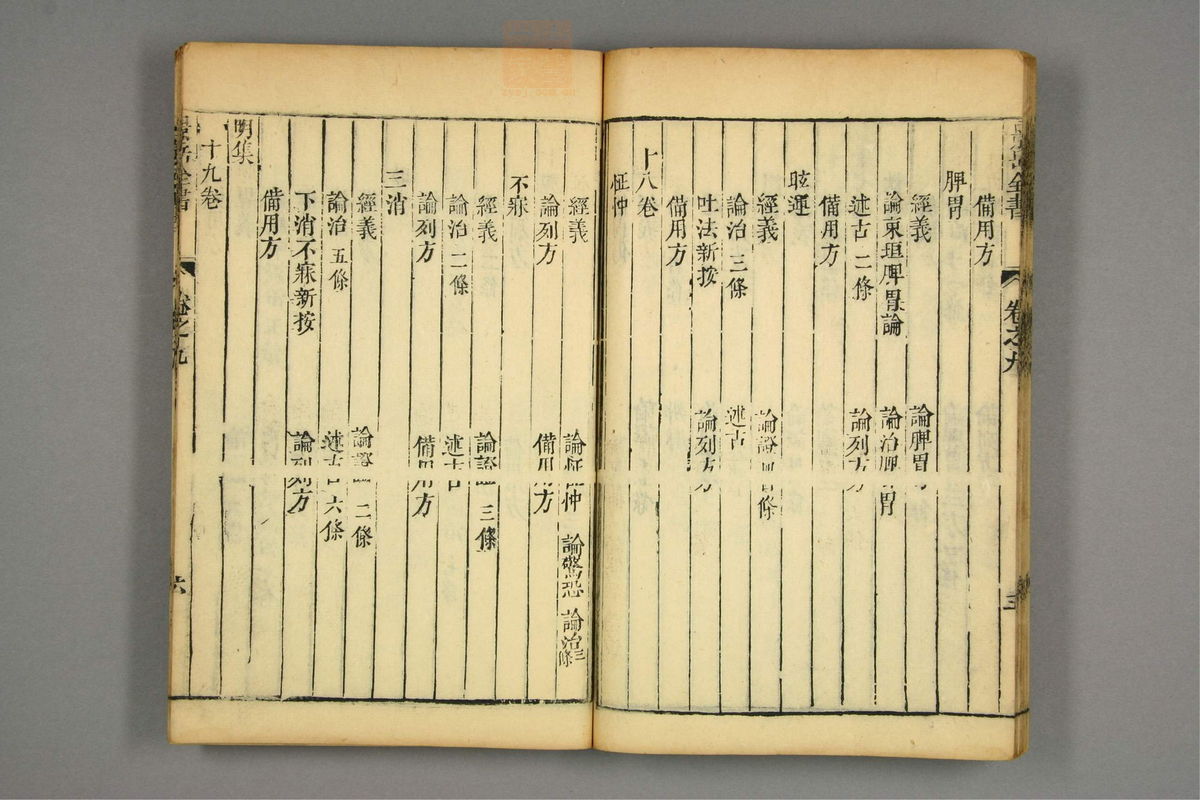 備用方
脾胃
經義 論脾胃
論東垣脾胃論 論治脾胃
述古 二條 論列方
備用方
眩運
經義 論證 四條
論治 三條 述古
吐法新按 論列方
備用方
十八卷
怔忡
經義 論怔忡 論驚恐 論治 三條
論列方 備用方
不寐
經義 論證 三條
論治 二條 述古
論列方 備用方
三消
經義 論證 二條
論治 五條 述古 六條
下消不寐新按 論列方
備用方
明集
十九卷
景岳全書 卷之九 六
岳全書 卷之九